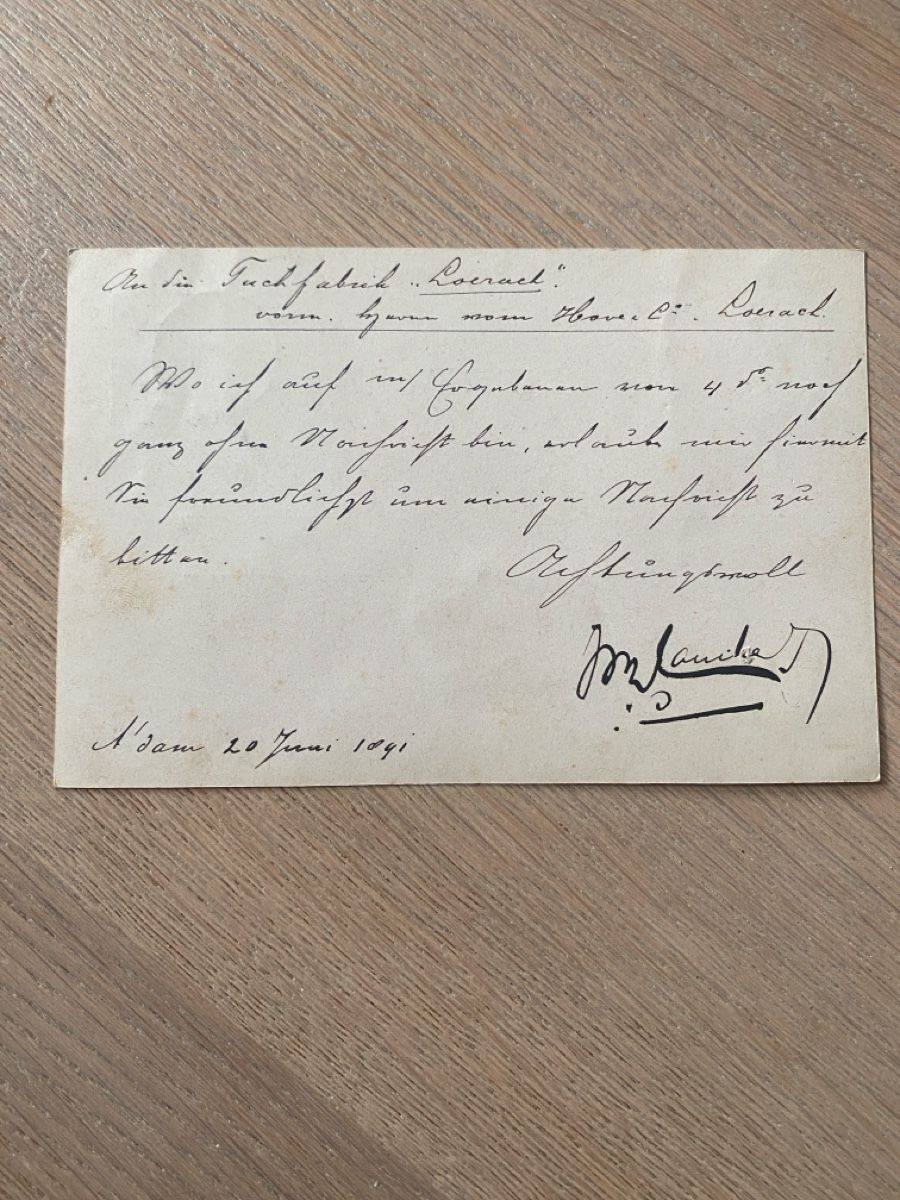 An die Tuchfabrik „Loerach“.
vorm. Herrn vom Hove & Co. Loerach.
Wo ich auf m/ Ergebenen von 4 do noch
ganz ohne Nachricht bin, erlaube mir hiermit
Sie freundlichst um einige Nachricht zu
bitten.
Achtungsvoll
A'dam 20 Juni 1891